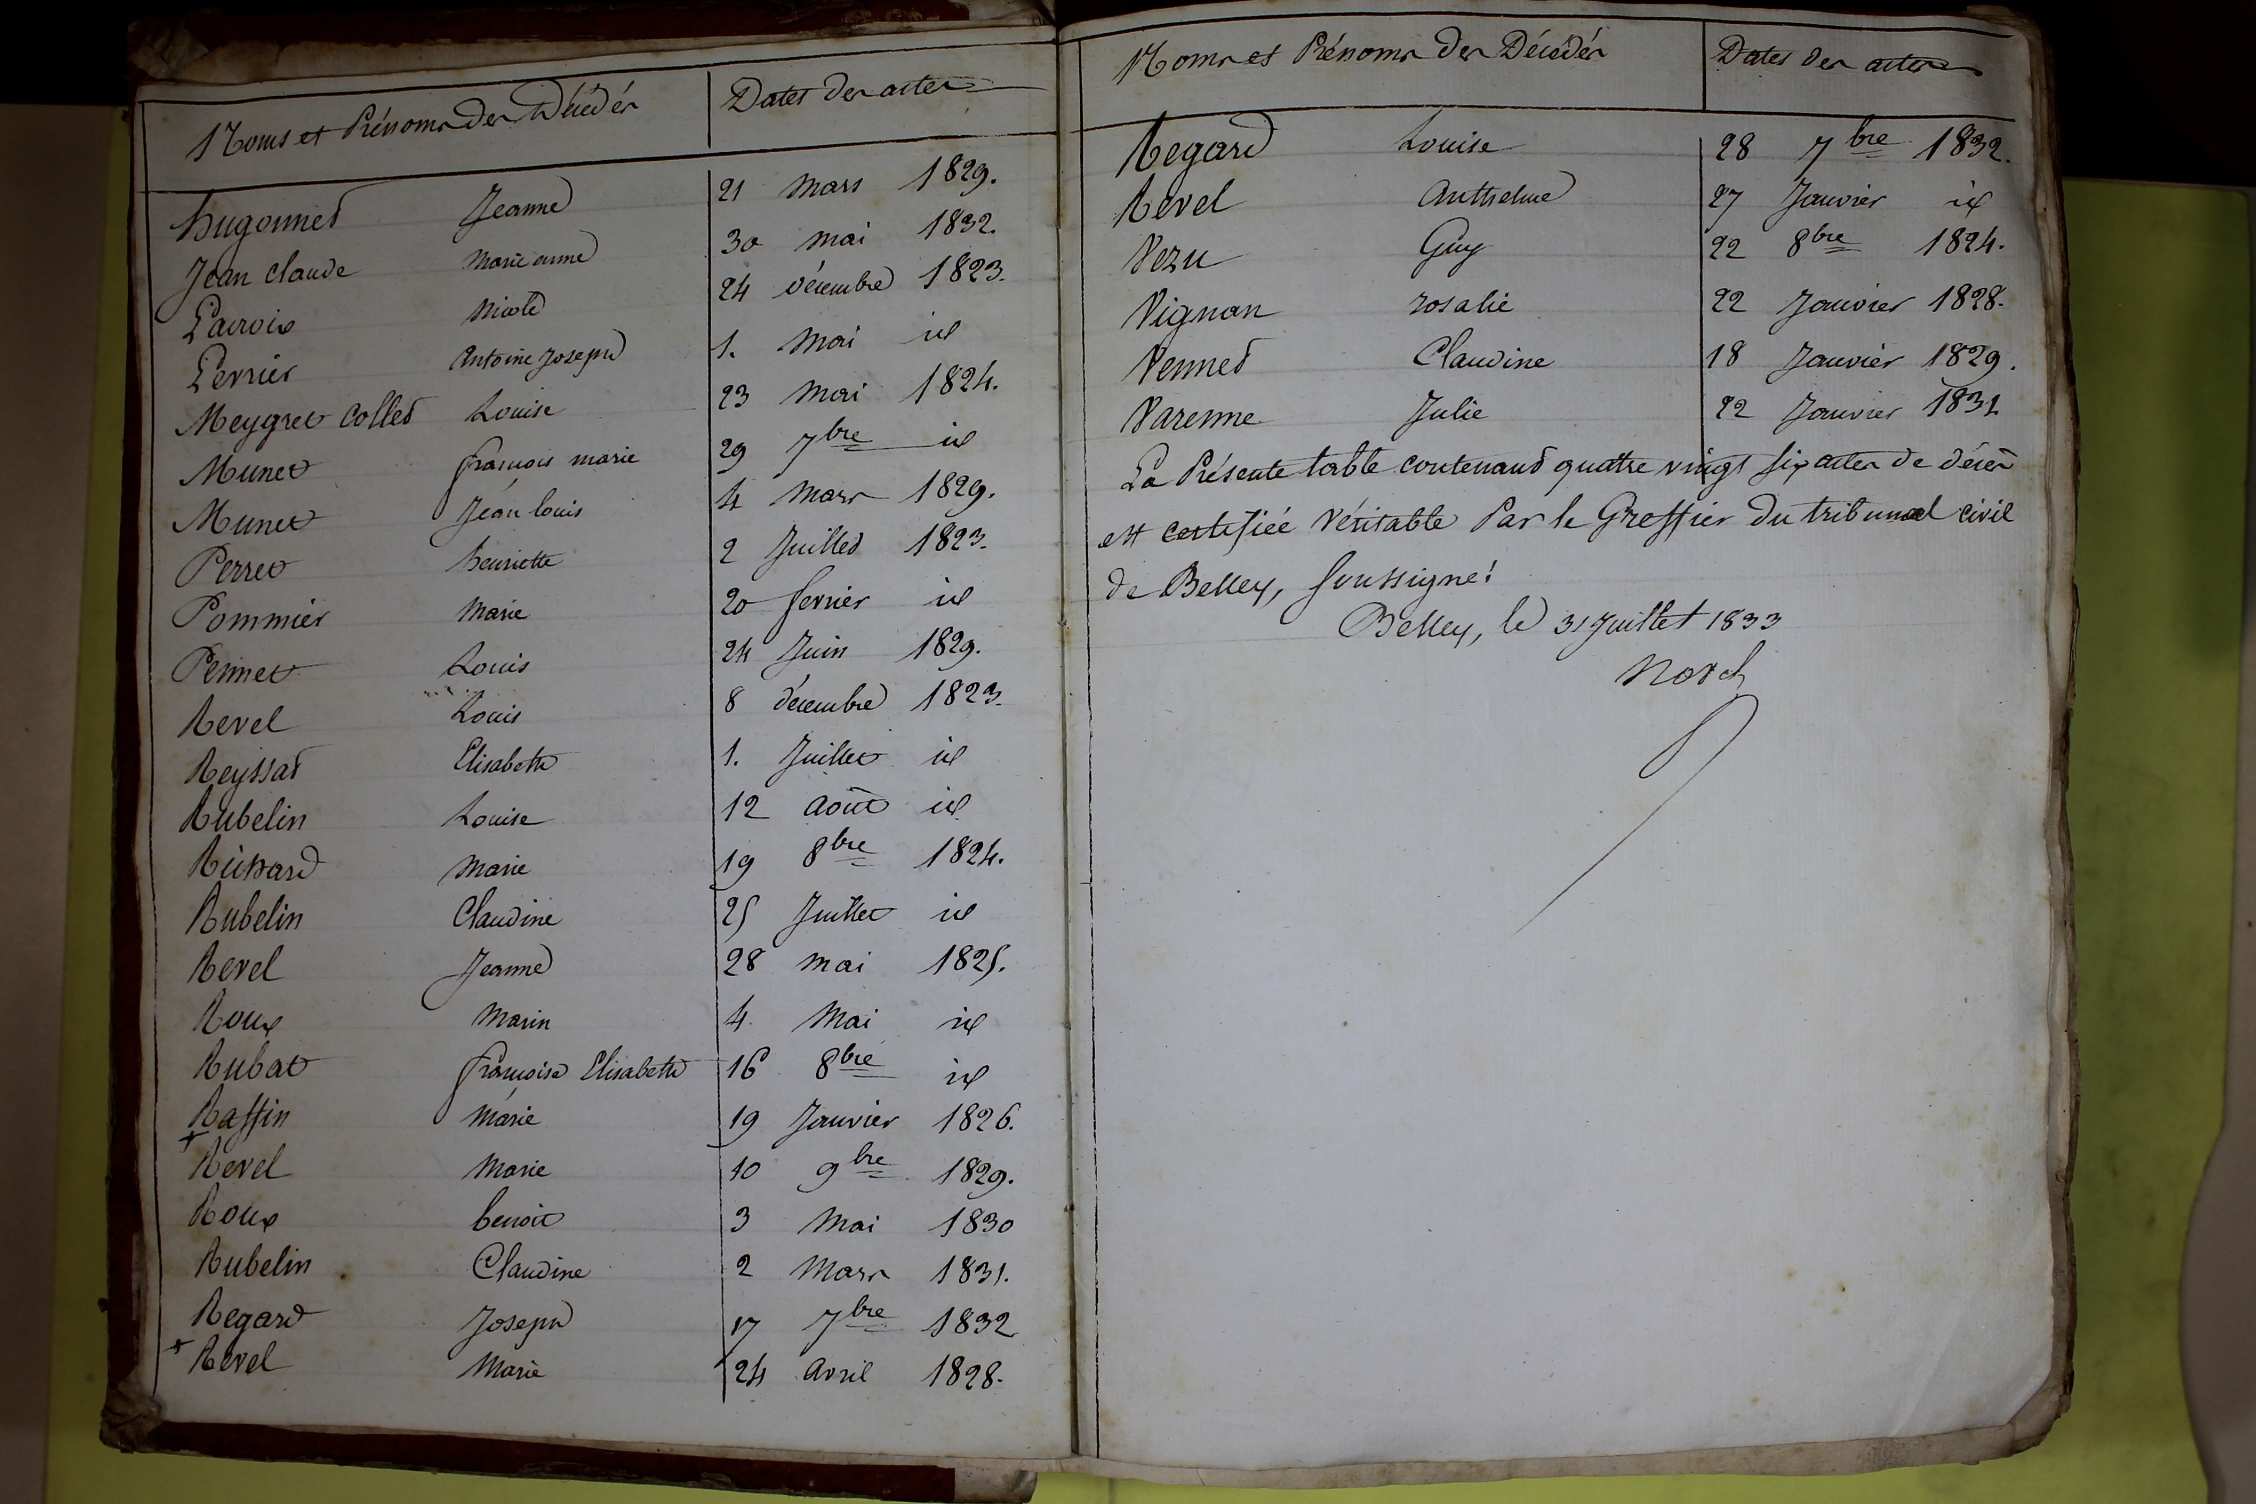 Noms et Prénoms des Décédés Dates des actes
hugonnet Jeanne 21 mars 1829.
Jean claude marie anne 30 mai 1832.
Lacroix Nicole 24 décembre 1823.
Perrier Antoine Joseph 1. mai id
Meygret Collet Louise 23 mai 1824.
Munet françois marie 29 7bre id
Munet Jean louis 4 mars 1829.
Perret henriette 2 Juillet 1823.
Pommier Marie 20 fevrier id
Pennet Louis 24 Juin 1829.
Revel Louis 8 décembre 1823.
Reyssat Elisabeth 1. Juillet id
Rubelin Louise 12 août id
Marie 19 8bre 1824.
Rubelin Claudine 25 Juillet id
Revel Jeanne 28 mai 1825.
Roux Marin 4 Mai id
Rubat françoise Elisabeth 16 8bre id
Raffin Marie 19 Janvier 1826.
+ Revel Marie 10 9bre 1829.
Roux benoit 3 Mai 1830
Rubelin Claudine 2 Mars 1831.
Regard Joseph 17 7bre 1832
+ Revel Marie 24 avril 1828.
Noms et Prénoms des Décédés Dates des actes
Regard Louise 28 7bre 1832.
Revel Anthelme 27 Janvier id
Vezu Guy 22 8bre 1824.
Vignan rosalie 22 Janvier 1828.
Vennet Claudine 18 Janvier 1829.
Varenne Julie 22 Janvier 1831
La Présente table contenant quatre vingt six actes de décès
est certifiée véritable Par le Greffier du tribunal civil
de Belley, soussigné!
Belley, le 31 Juillet 1833